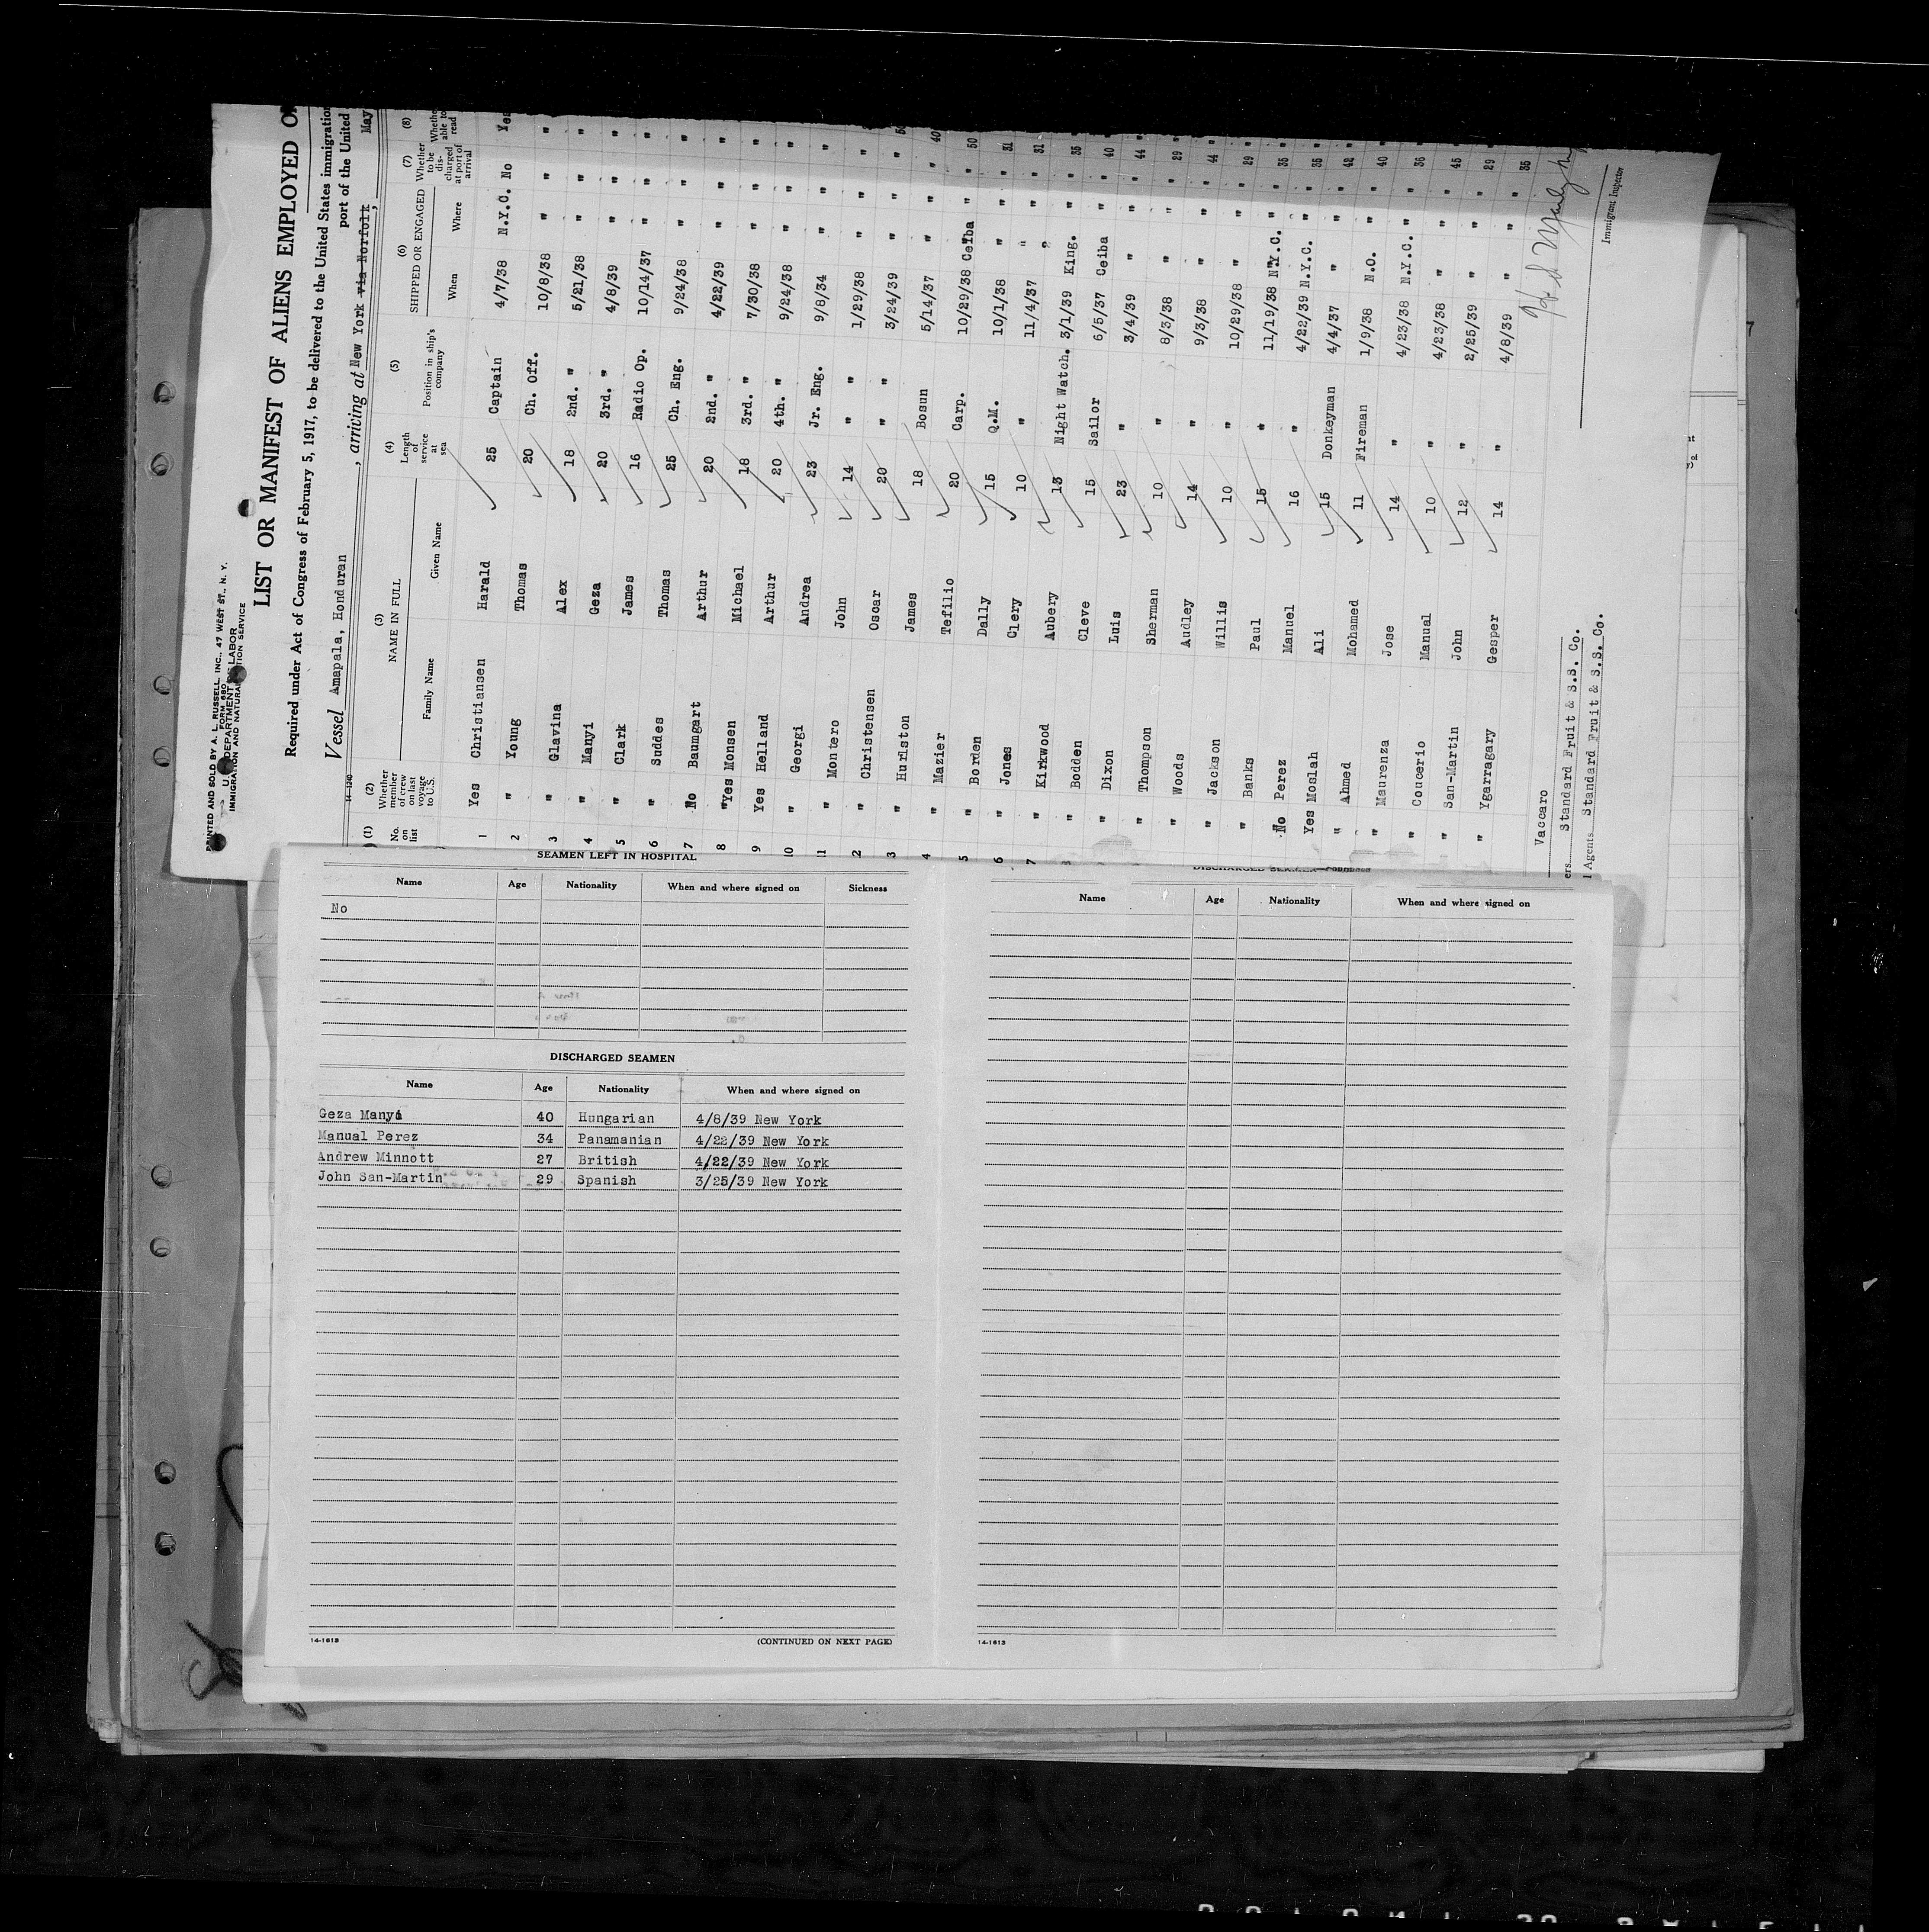 PRINTED AND SOLD BY A. L. RUSSELL, INC., 47 WEST ST., N. Y.
FORM 680
U. S. DEPARTMENT OF LABOR
IMMIGRATION AND NATURALIZATION SERVICE
LIST OR MANIFEST OF ALIENS EMPLOYED O
Required under Act of Congress of February 5, 1917, to be delivered to the United States immigration
port of the United
Vessel Amapala, Honduran , arriving at New York via Norfolk, May
14-1240
(1) No. on list (2) Whether member of crew on last voyage to U.S. (3) NAME IN FULL Family Name Given Name (4) Length of service at sea (5) Position in ship's company (6) SHIPPED OR ENGAGED When Where (7) Whether to be discharged at port of arrival (8) Whether able to read
1 Yes Christiansen Harald 25 Captain 4/7/38 N.Y.C. No Yes
2 " Young Thomas 20 Ch. Off. 10/8/38 " " "
3 " Glavina Alex 18 2nd. " 5/21/38 " " "
4 " Manyi Geza 20 3rd. " 4/8/39 " " "
5 " Clark James 16 Radio Op. 10/14/37 " " "
6 " Suddes Thomas 25 Ch. Eng. 9/24/38 " " "
7 No Baumgart Arthur 20 2nd. " 4/22/39 " " "
8 "Yes Monsen Michael 18 3rd. " 7/30/38 " " "
9 Yes Helland Arthur 20 4th. " 9/24/38 " " "
10 " Georgi Andrea 23 Jr. Eng. 9/8/34 " " "
11 " Montero John 14 " " 1/29/38 " " "
2 " Christensen Oscar 20 " " 3/24/39 " " "
3 " Hurlston James 18 Bosun 5/14/37 " " 40
4 " Mazier Tefilio 20 Carp. 10/29/38 Ceiba " 50
5 " Borden Dally 15 Q.M. 10/1/38 " " 31
6 " Jones Clery 10 " 11/4/37 " " 31
7 " Kirkwood Aubery 13 Night Watch. 3/1/39 King. " 35
8 " Bodden Cleve 15 Sailor 6/5/37 Ceiba " 40
" Dixon Luis 23 " 3/4/39 " " 44
" Thompson Sherman 10 " 8/3/38 " " 29
" Woods Audley 14 " 9/3/38 " " 44
" Jackson Willis 10 " 10/29/38 " " 29
" Banks Paul 15 " 11/19/38 N.Y.C. " 35
No Perez Manuel 16 " 4/22/39 N.Y.C. " 35
Yes Moslah Ali 15 Donkeyman 4/4/37 " " 42
" Ahmed Mohamed 11 Fireman 1/9/38 N.O. " 40
" Maurenza Jose 14 " 4/23/38 N.Y.C. " 36
" Coucerio Manual 10 " 4/23/38 " " 45
" San-Martin John 12 " 2/25/39 " " 29
" Ygarragary Gesper 14 " 4/8/39 " " 35
Vaccaro
ers Standard Fruit & S.S. Co.
l Agents Standard Fruit & S.S. Co.
Immigrant Inspector
SEAMEN LEFT IN HOSPITAL
Name Age Nationality When and where signed on Sickness
No
DISCHARGED SEAMEN
Name Age Nationality When and where signed on
Geza Manyi 40 Hungarian 4/8/39 New York
Manual Perez 34 Panamanian 4/22/39 New York
Andrew Minnott 27 British 4/22/39 New York
John San-Martin 29 Spanish 3/25/39 New York
14-1613 (CONTINUED ON NEXT PAGE)
DISCHARGED SEAMEN
Name Age Nationality When and where signed on
14-1613